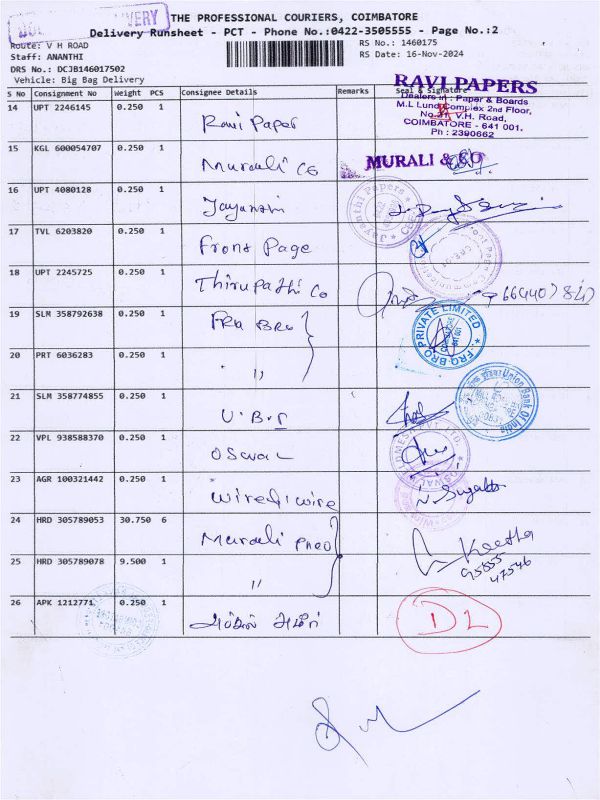 DELIVERY
THE PROFESSIONAL COURIERS, COIMBATORE
Delivery Runsheet - PCT - Phone No.:0422-3505555 - Page No.:2
Route: V H ROAD
RS No.: 1460175
Staff: ANANTHI
RS Date: 16-Nov-2024
DRS No.: DCJB146017502
Vehicle: Big Bag Delivery
S No Consignment No Weight PCS Consignee Details Remarks Seal & Signature
RAVI PAPERS
Dealers in : Paper & Boards
M.L Lund Complex 2nd Floor,
V.H. Road,
COIMBATORE - 641 001.
Ph : 2390662
14 UPT 2246145 0.250 1 Ravi Paper
15 KGL 600054707 0.250 1 Murali Co
MURALI & CO
16 UPT 4080128 0.250 1 Jayanthi
Jayanthi Papers
17 TVL 6203820 0.250 1 Front Page
18 UPT 2245725 0.250 1 Thirupathi Co
19 SLM 358792638 0.250 1 FRQ BRO
FRQ BRO PRIVATE LIMITED
20 PRT 6036283 0.250 1 "
21 SLM 358774855 0.250 1 U.B.I
Union Bank Of India
22 VPL 938588370 0.250 1 Oswal
23 AGR 100321442 0.250 1 Wire 4 wire
24 HRD 305789053 30.750 6 Murali Pneo
Keetha
95855
47546
25 HRD 305789078 9.500 1 "
26 APK 1212771 0.250 1
DL